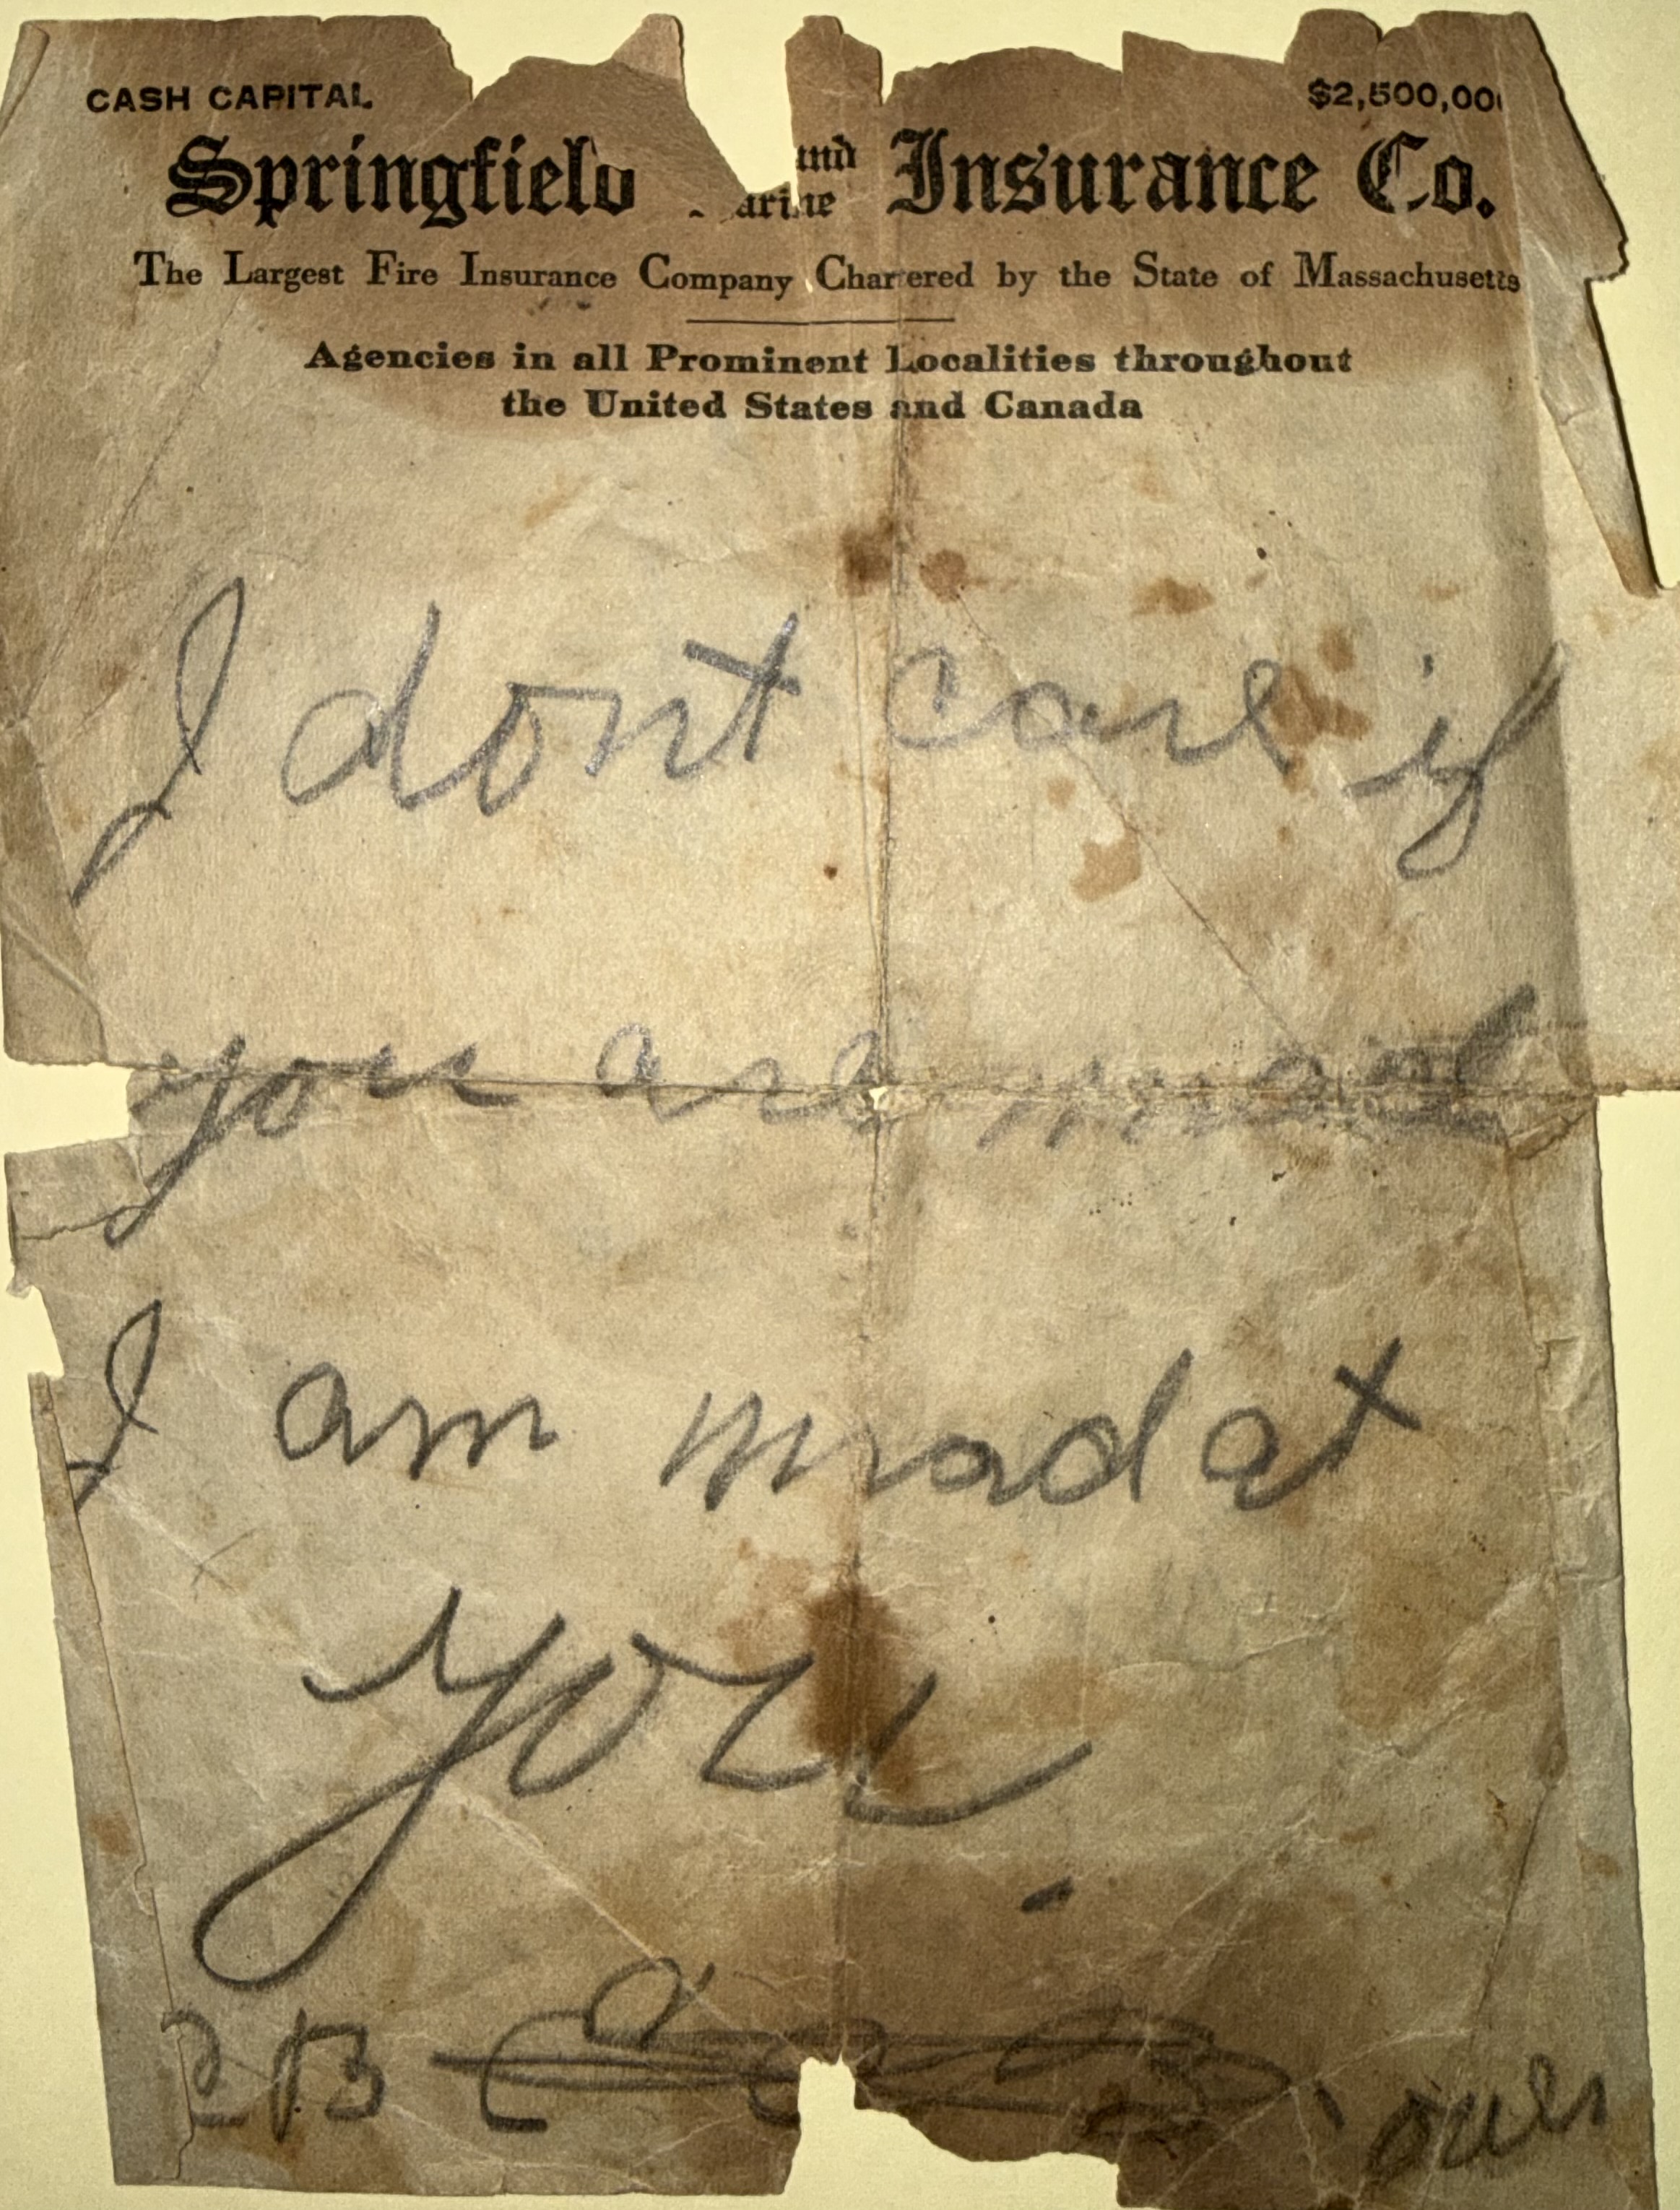 CASH CAPITAL $2,500,00
Springfield and Insurance Co.
arine
The Largest Fire Insurance Company Chartered by the State of Massachusetts
Agencies in all Prominent Localities throughout
the United States and Canada
I dont care if
you are mad
I am mad at
you.
over